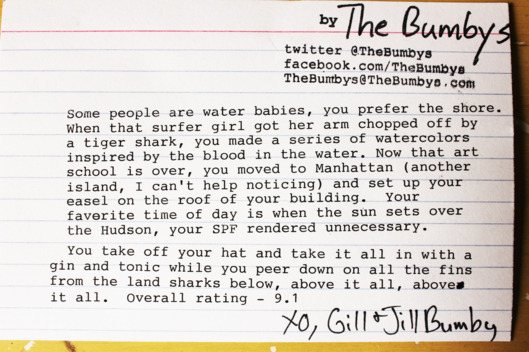 by The Bumbys
twitter @TheBumbys
facebook.com/TheBumbys
TheBumbys@TheBumbys.com
Some people are water babies, you prefer the shore.
When that surfer girl got her arm chopped off by
a tiger shark, you made a series of watercolors
inspired by the blood in the water. Now that art
school is over, you moved to Manhattan (another
island, I can't help noticing) and set up your
easel on the roof of your building. Your
faverite time of day is when the sun sets over
the Hudson, your SPF rendered unnecessary.
You take off your hat and take it all in with a
gin and tonic while you peer down on all the fins
from the land sharks below, above it all, above
it all. Overall rating - 9.1
XO, Gill & Jill Bumby